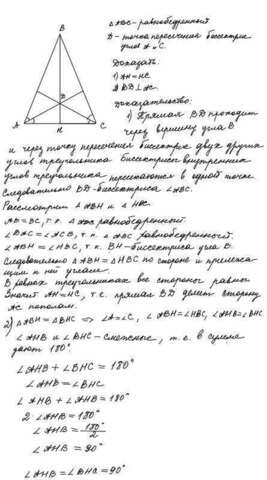 B
D
A
H
C
△ABC-равнобедренный
D-точка пересечения биссектрис
угла A и C
Доказать:
1) AH=HC
2) BD⊥AC
Доказательство:
1) Прямая BD проходит
через вершину угла B
и через точку пересечения биссектрис двух других
углов треугольника биссектрисы внутренних
углов треугольника пересекаются в одной точке.
Следовательно BD-биссектриса ∠ABC.
Рассмотрим △ABH и △HBC.
AB=BC, т.к. △ABC равнобедренный.
∠BAC=∠ACB, т.к △ABC равнобедренный.
∠ABH=∠HBC, т.к. BH-биссектриса угла B.
Следовательно △ABH=△HBC по стороне и прилежа-
щим к ней углам.
В равных треугольниках все стороны равны.
Значит AH=HC, т.е. прямая BD делит сторону
AC пополам.
2) △ABH=△BHC ⇒ ∠A=∠C, ∠ABH=∠HBC, ∠AHB=∠BHC
∠AHB и ∠BHC-смежные, т.е. в сумме
дают 180°
∠AHB+∠BHC=180°
∠AHB=∠BHC
∠AHB+∠AHB=180°
2·∠AHB=180°
∠AHB=180°/2
∠AHB=90°
∠AHB=∠BHC=90°